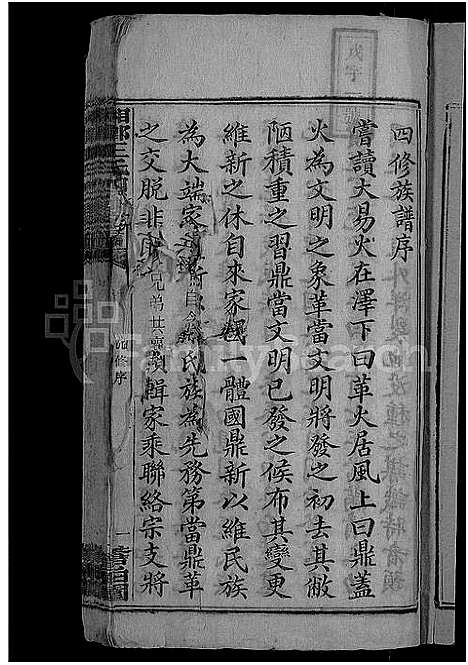 四修族譜序
嘗讀大易火在澤下曰革火居風上曰鼎蓋
火為文明之象革當文明將發之初去其敝
陋積重之習鼎當文明已發之候布其變更
維新之休自來家國一體國鼎新以維民族
為大端家 新 氏族為先務第當鼎革
之交脫非 兄弟 輯家乘聯絡宗支將
修序
一
FamilySearch